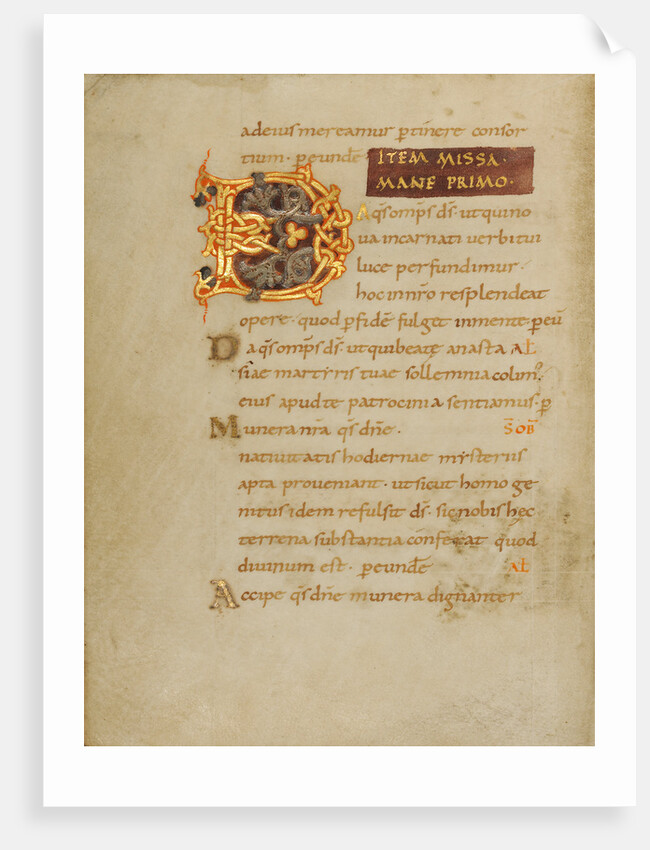 adeius mereamur ptinere consor
tium · peundē ITEM MISSA ·
MANE PRIMO ·
DA qs omps ds · ut qui no
va incarnati verbi tui
luce perfundimur ·
hoc in nro resplendeat
opere · quod p fidē fulget in mente · peū
Da qs omps ds · ut qui beatę anasta AL
siae martyris tuae sollemnia colim
eius apud te patrocinia sentiamus · p
Munera nra qs dne · S OB
nativitatis hodiernae mysteriis
apta proveniant · ut sicut homo ge
nitus idem refulsit ds · sic nobis hęc
terrena substantia conferat quod
divinum est · peundē AL
Accipe qs dne munera dignanter